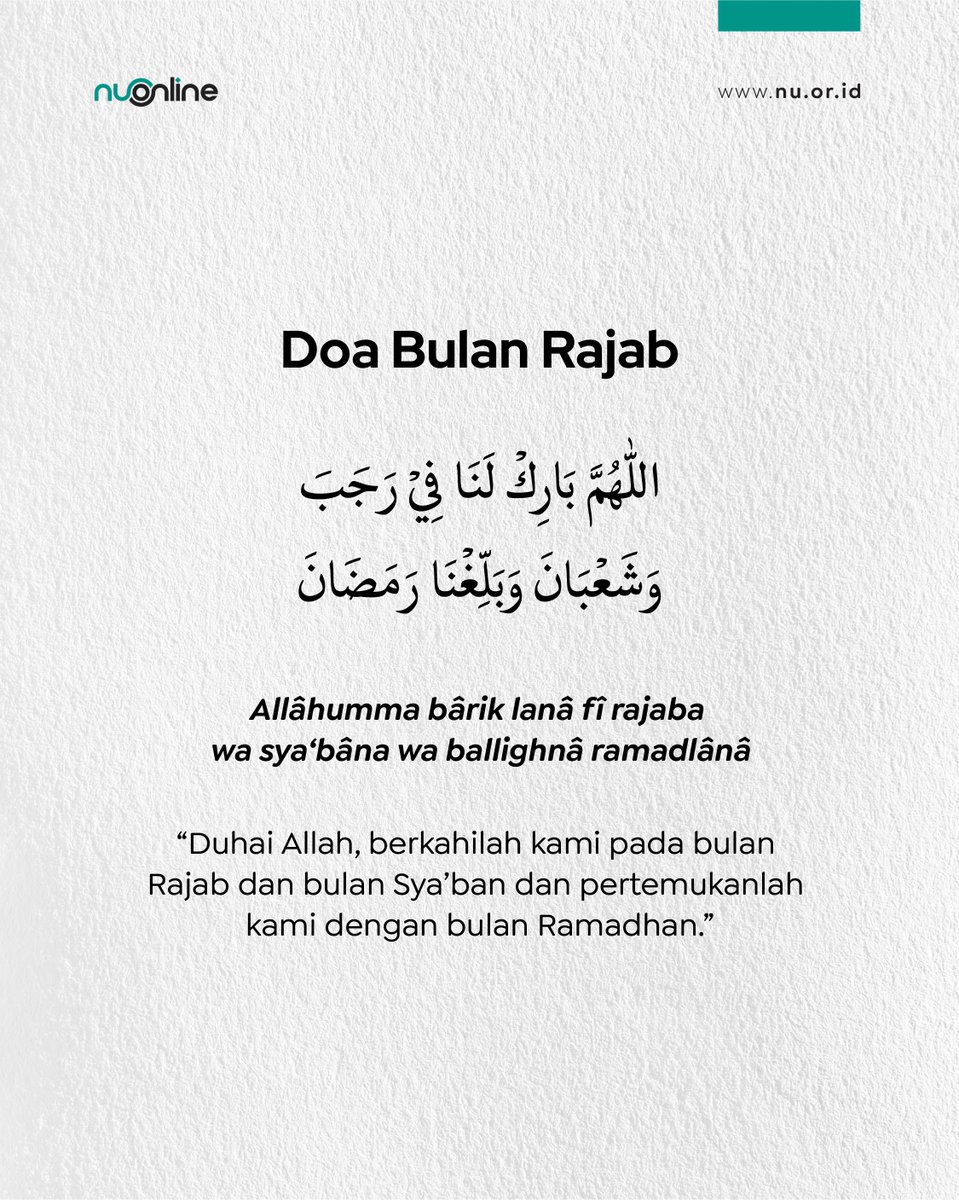 nuonline
www.nu.or.id
Doa Bulan Rajab
اللّٰهُمَّ بَارِكْ لَنَا فِيْ رَجَبَ
وَشَعْبَانَ وَبَلِّغْنَا رَمَضَانَ
Allâhumma bârik lanâ fî rajaba
wa sya‘bâna wa ballighnâ ramadlânâ
“Duhai Allah, berkahilah kami pada bulan
Rajab dan bulan Sya’ban dan pertemukanlah
kami dengan bulan Ramadhan.”